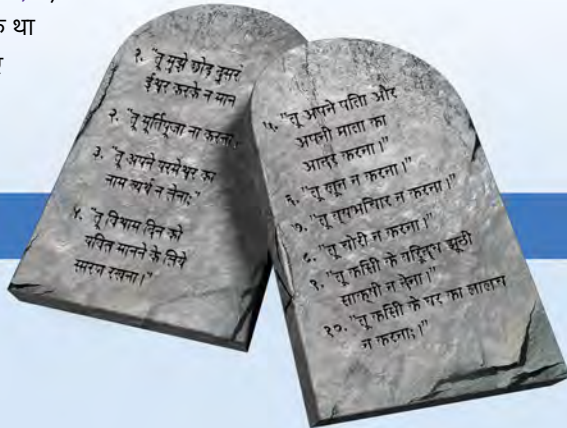 क था
१. "तू मुझे छोड दुसरं
ईश्वर करके न मान
२. "तू मूर्तिपूजा ना करना,
३. "तू अपने परमेश्वर का
नाम व्यर्थ न लेना;"
४. "तू विश्राम दिन को
पवित मानने के लिये
स्मरण रखना।"
५. "तू अपने पतिा और
अपनी माता का
आदर करना।"
६. "तू खून न करना।"
७. "तू वयभचिार न करना।"
८. "तू चोरी न करना।"
९. "तू कसिी के वरिुदध झूठी
साक्षी न देना।"
१०. "तू कसिी के घर का लालच
न करना;।"